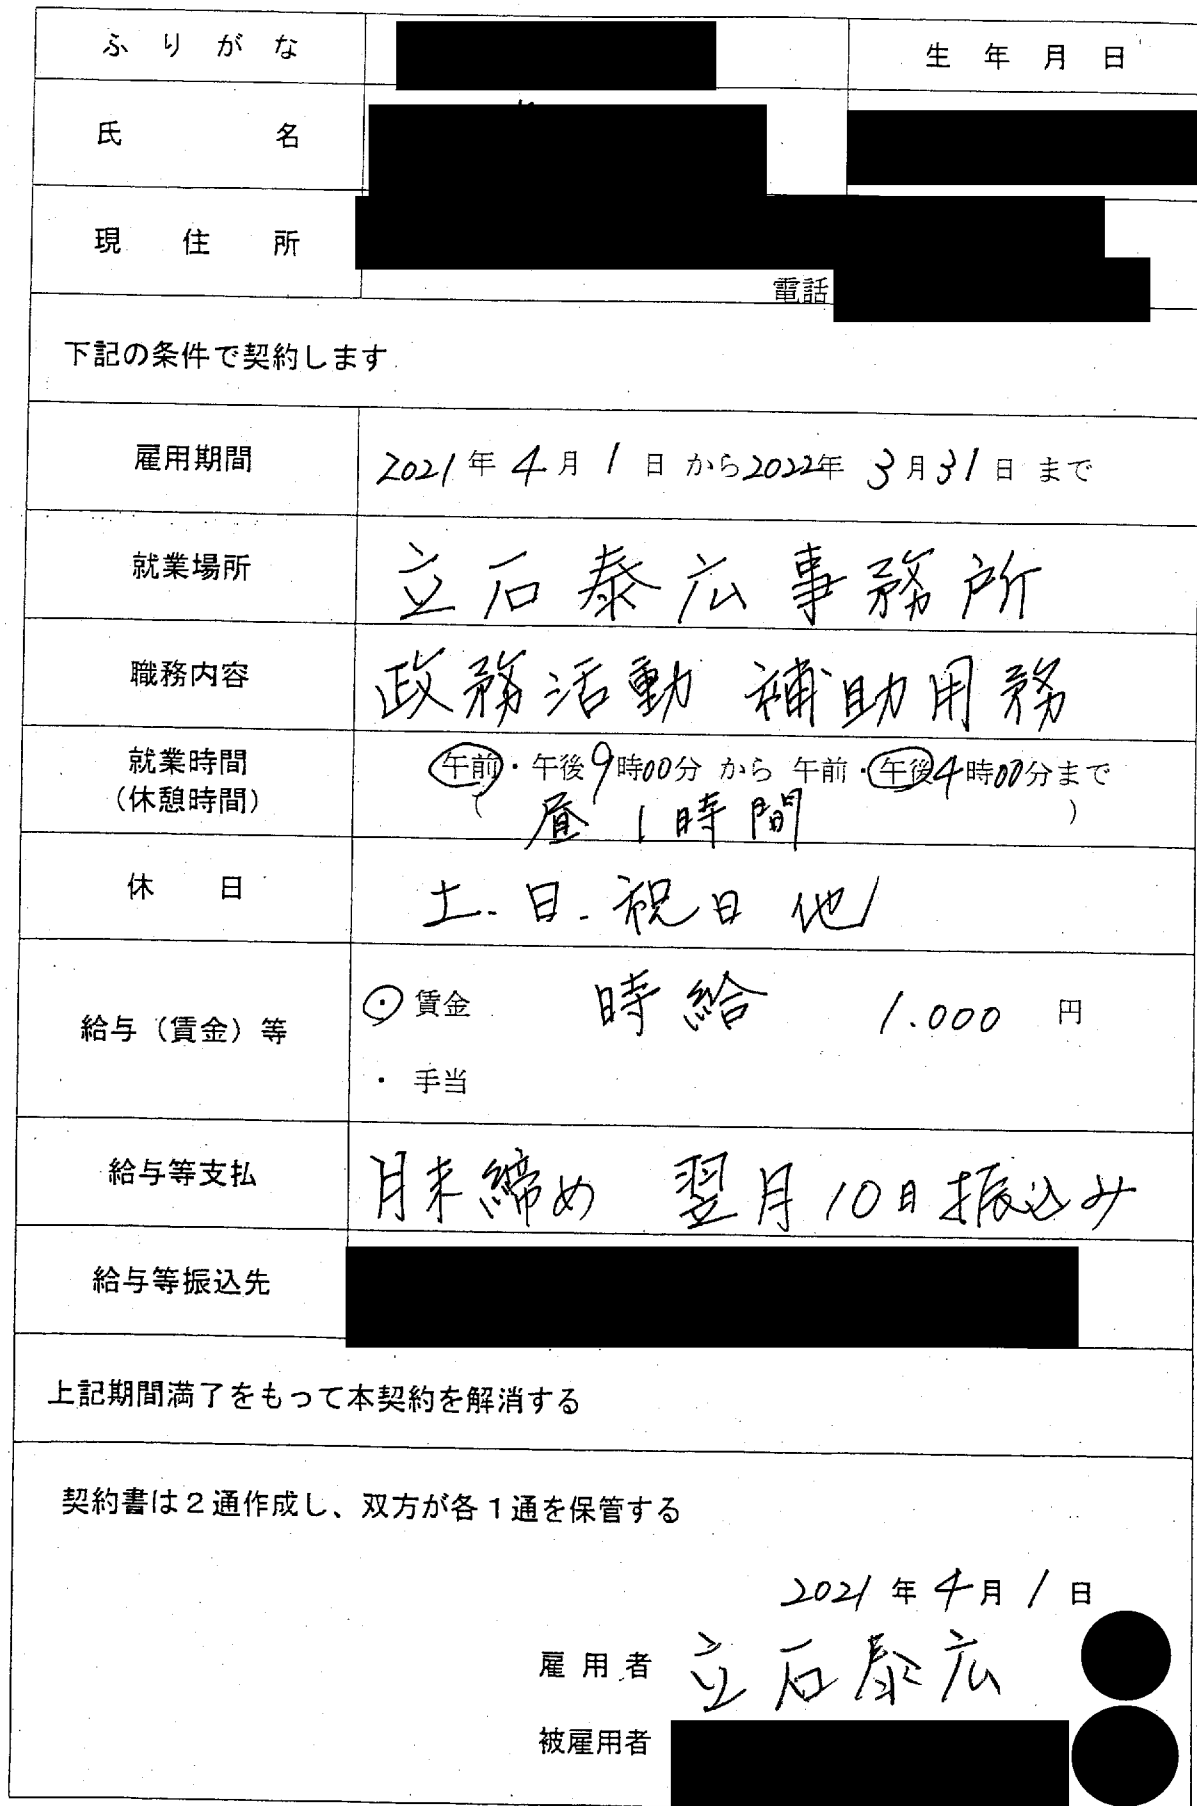 ふりがな 生年月日
氏名
現住所
電話
下記の条件で契約します
雇用期間 2021年4月1日から2022年3月31日まで
就業場所 立石泰広事務所
職務内容 政務活動 補助用務
就業時間 午前・午後9時00分 から 午前・午後4時00分まで
(休憩時間) ( 昼1時間 )
休日 土.日.祝日 他
給与(賃金)等 ・賃金 時給 1.000 円
・手当
給与等支払 月末締め 翌月10日振込み
給与等振込先
上記期間満了をもって本契約を解消する
契約書は2通作成し、双方が各1通を保管する
2021年4月1日
雇用者 立石泰広
被雇用者